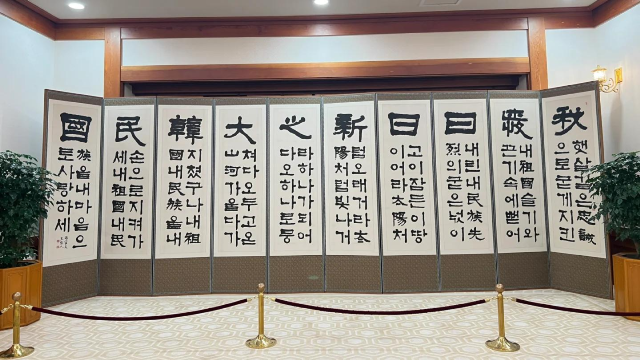 秋
日日新心大韓民國
햇살같은忠誠
으로굳게지킨
내祖國슬기와
끈기속에뻗어
내린내民族先
烈의굳은넋이
고이잠든이땅
이어라太陽처
럼오래거라太
陽처럼빛나거
라하나가되어
다오하나로둥
쳐다오두고온
山河가울다가
지쳤구나내祖
國내民族을내
손으로지켜가
세내祖國내民
族을내마음으
로사랑하세